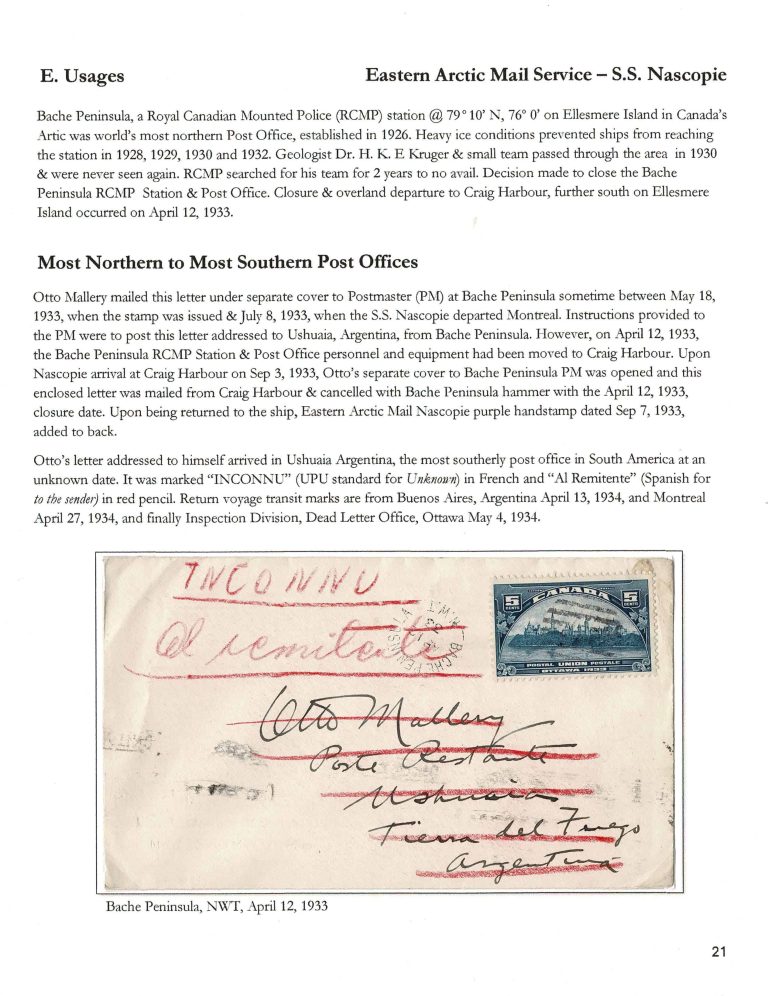 E. Usages
Eastern Arctic Mail Service – S.S. Nascopie
Bache Peninsula, a Royal Canadian Mounted Police (RCMP) station @ 79° 10’ N, 76° 0’ on Ellesmere Island in Canada’s
Artic was world’s most northern Post Office, established in 1926. Heavy ice conditions prevented ships from reaching
the station in 1928, 1929, 1930 and 1932. Geologist Dr. H. K. E Kruger & small team passed through the area in 1930
& were never seen again. RCMP searched for his team for 2 years to no avail. Decision made to close the Bache
Peninsula RCMP Station & Post Office. Closure & overland departure to Craig Harbour, further south on Ellesmere
Island occurred on April 12, 1933.
Most Northern to Most Southern Post Offices
Otto Mallery mailed this letter under separate cover to Postmaster (PM) at Bache Peninsula sometime between May 18,
1933, when the stamp was issued & July 8, 1933, when the S.S. Nascopie departed Montreal. Instructions provided to
the PM were to post this letter addressed to Ushuaia, Argentina, from Bache Peninsula. However, on April 12, 1933,
the Bache Peninsula RCMP Station & Post Office personnel and equipment had been moved to Craig Harbour. Upon
Nascopie arrival at Craig Harbour on Sep 3, 1933, Otto’s separate cover to Bache Peninsula PM was opened and this
enclosed letter was mailed from Craig Harbour & cancelled with Bache Peninsula hammer with the April 12, 1933,
closure date. Upon being returned to the ship, Eastern Arctic Mail Nascopie purple handstamp dated Sep 7, 1933,
added to back.
Otto’s letter addressed to himself arrived in Ushuaia Argentina, the most southerly post office in South America at an
unknown date. It was marked “INCONNU” (UPU standard for Unknown) in French and “Al Remitente” (Spanish for
to the sender) in red pencil. Return voyage transit marks are from Buenos Aires, Argentina April 13, 1934, and Montreal
April 27, 1934, and finally Inspection Division, Dead Letter Office, Ottawa May 4, 1934.
INCONNU
Al remitente
BACHE PENINSULA N.W.T.
5 CENTS CANADA 5 CENTS
POSTAL UNION POSTALE
OTTAWA 1933
Otto Mallery
Poste Restante
Ushuaia
Tierra del Fuego
Argentina
Bache Peninsula, NWT, April 12, 1933
21